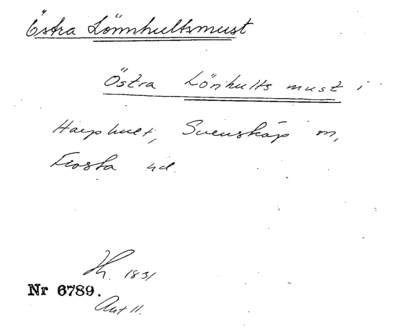 Östra Lönnhultsmust
Östra Lönhults must i
Harphult, Svensköp m,
Frosta hd.
1831
Nr 6789.
Akt 11.